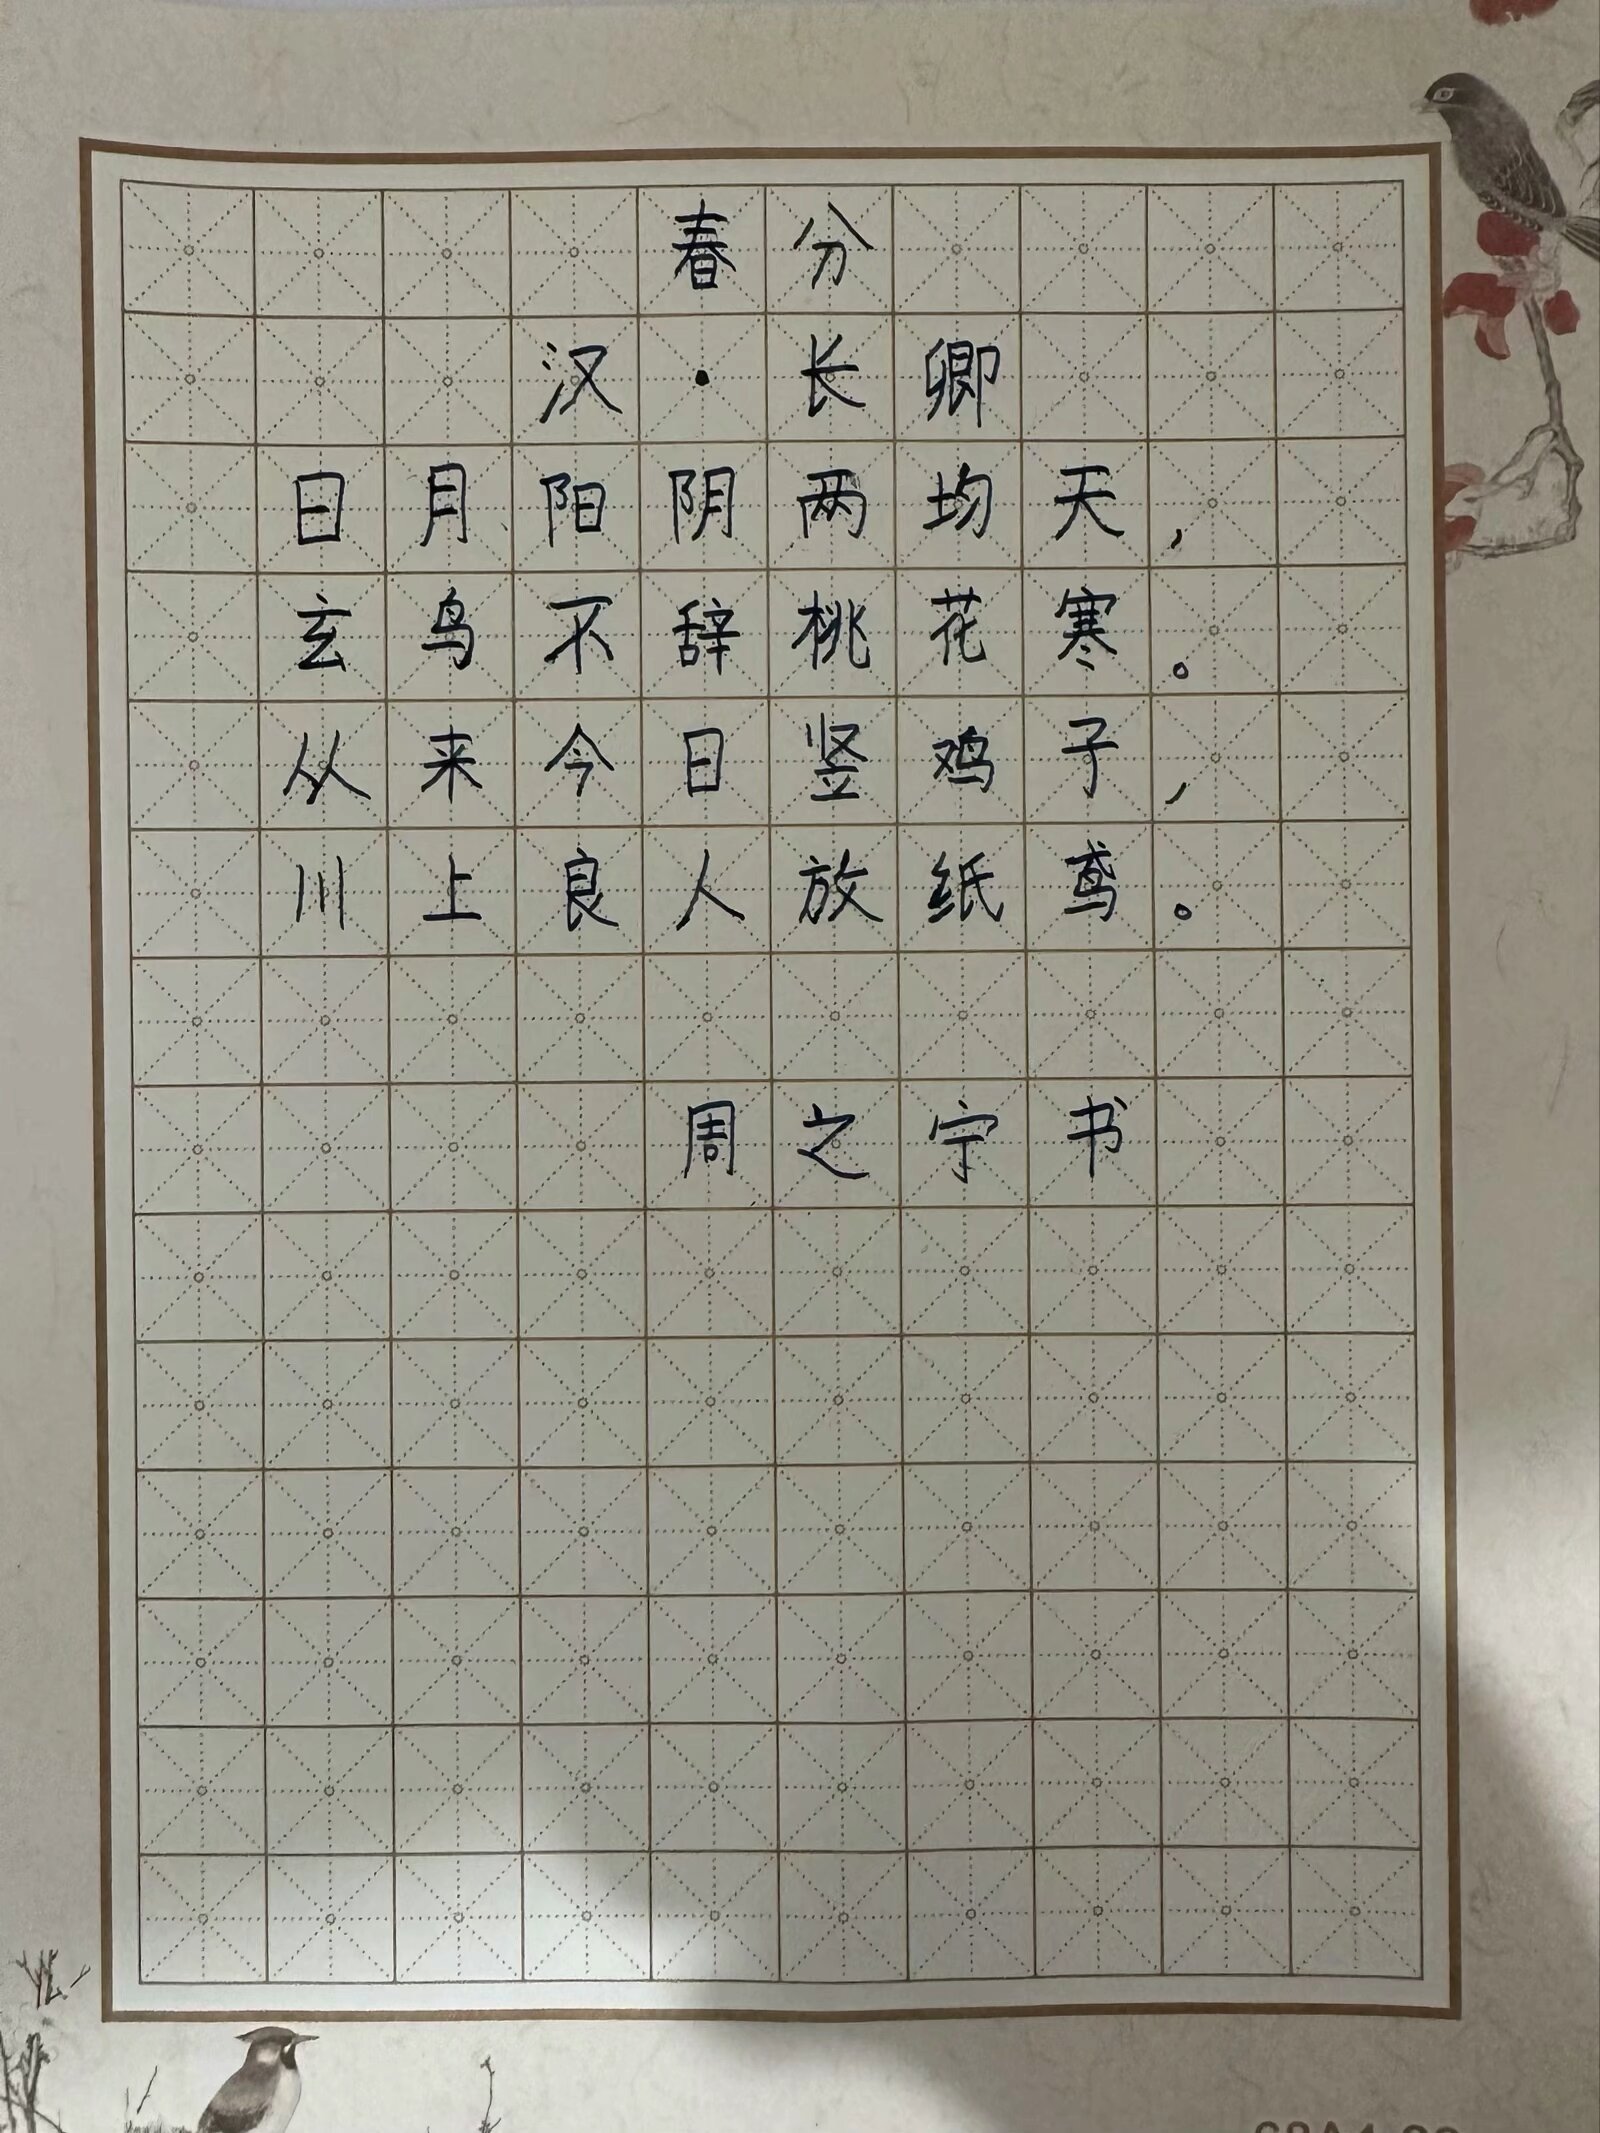 春分
汉·长卿
日月阳阴两均天，
玄鸟不辞桃花寒。
从来今日竖鸡子，
川上良人放纸鸢。
周之宁书